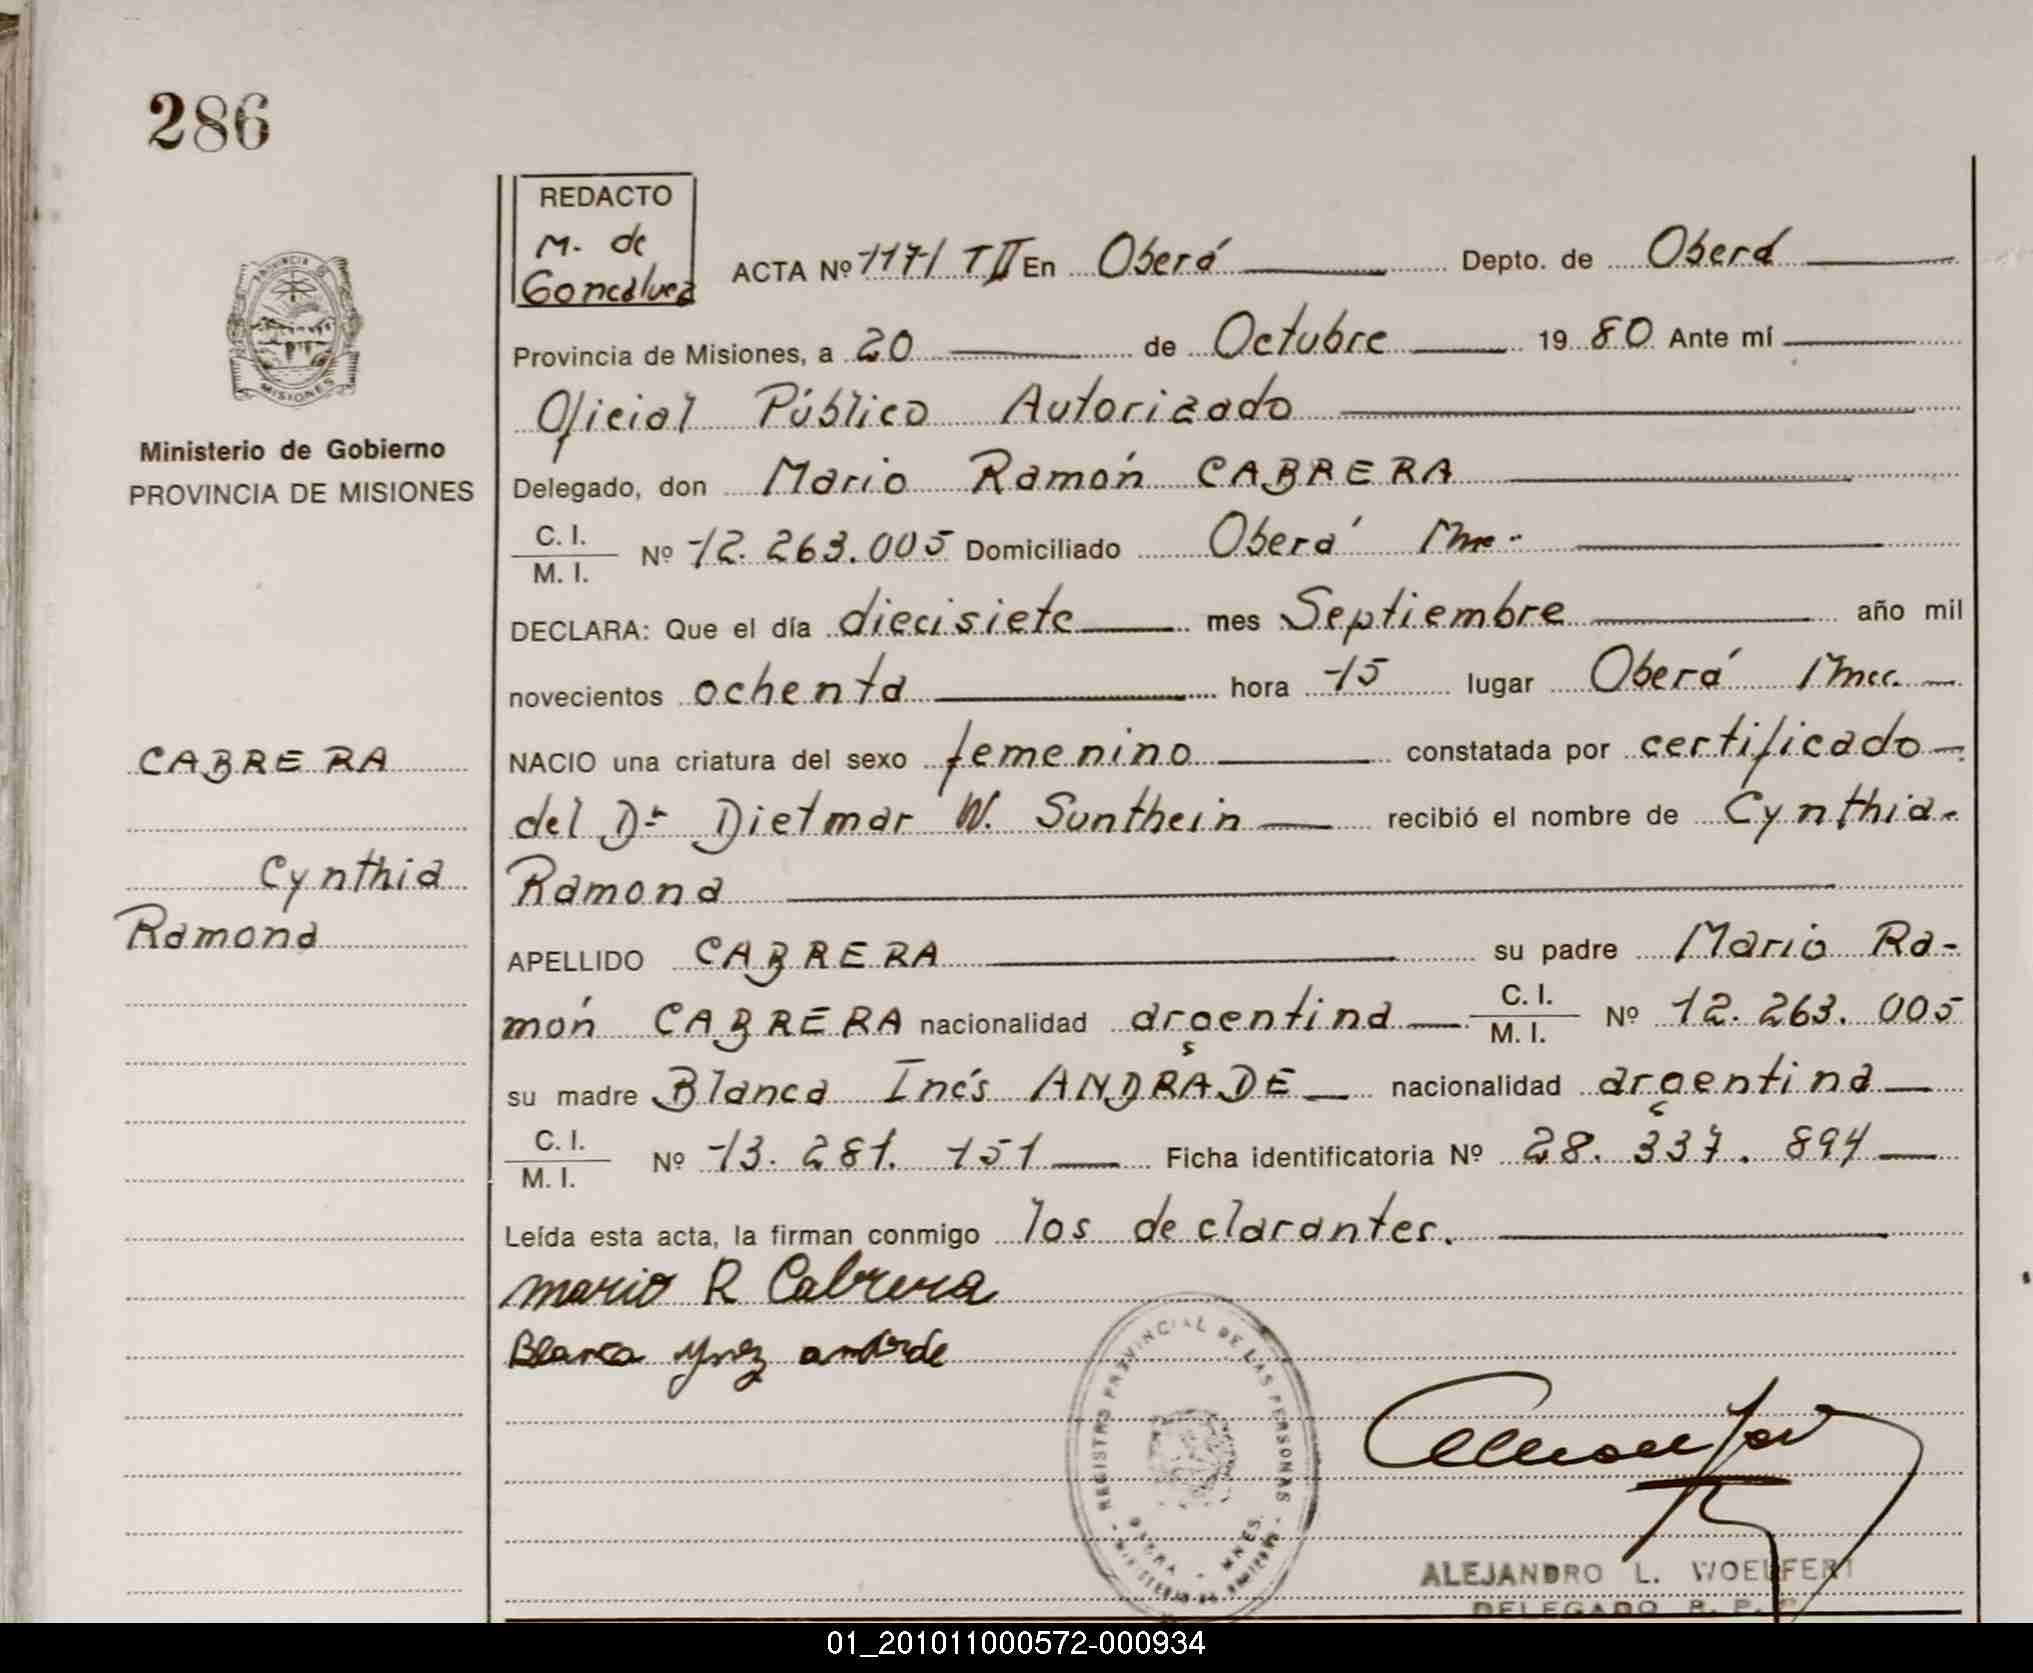 286
REDACTO
M. de
Goncalvez
ACTA Nº 1171 TII En Oberá Depto. de Oberá
Provincia de Misiones, a 20 de Octubre 19 80 Ante mí
Oficial Público Autorizado
Ministerio de Gobierno
PROVINCIA DE MISIONES
Delegado, don Mario Ramón CABRERA
C. I.
M. I. Nº 12.263.005 Domiciliado Oberá Mnes.
DECLARA: Que el día diecisiete mes Septiembre año mil
novecientos ochenta hora 15 lugar Oberá Mnes.
CABRERA
NACIO una criatura del sexo femenino constatada por certificado
del Dr Dietmar W. Sunthein recibió el nombre de Cynthia
Cynthia
Ramona
Ramona
APELLIDO CABRERA su padre Mario Ra-
món CABRERA nacionalidad argentina C. I. M. I. Nº 12.263.005
su madre Blanca Inés ANDRADE nacionalidad argentina
C. I.
M. I. Nº 13.281.151 Ficha identificatoria Nº 28.337.894
Leída esta acta, la firman conmigo los declarantes.
Mario R Cabrera
Blanca Ynez andrde
REGISTRO PROVINCIAL DE LAS PERSONAS
OBERA - MNES.
ALEJANDRO L. WOELFERT
DELEGADO R. P. P.
01_201011000572-000934